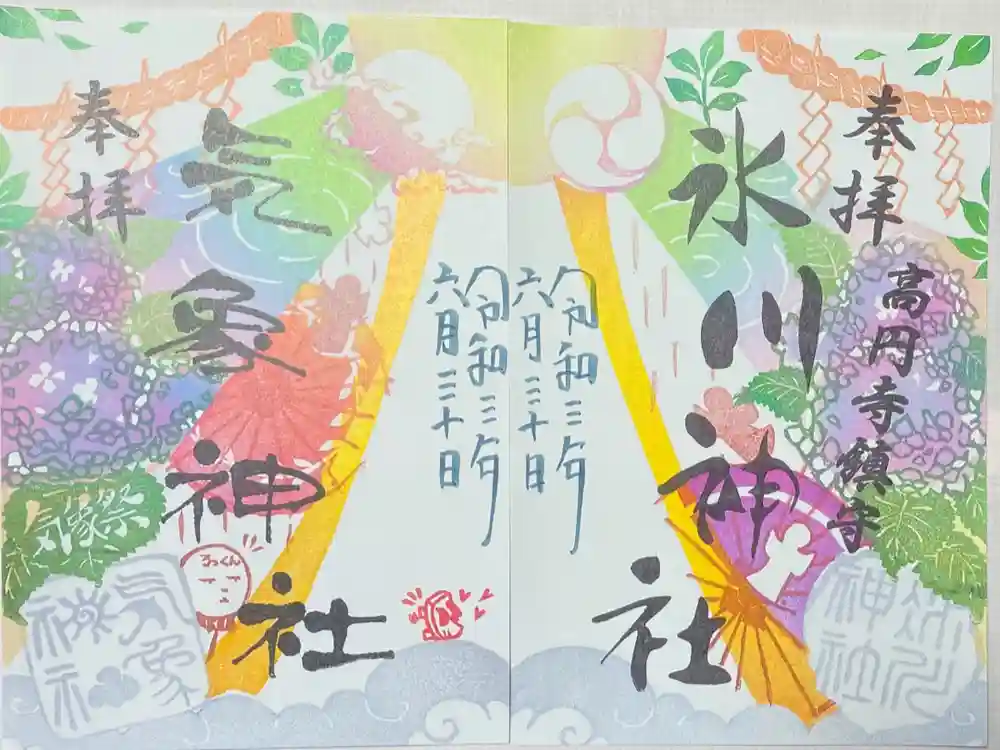 奉拝
高円寺鎮守
氷川神社
令和三年
六月三十日
氷川神社
令和三年
六月三十日
気象神社
奉拝
気象祭
気象神社